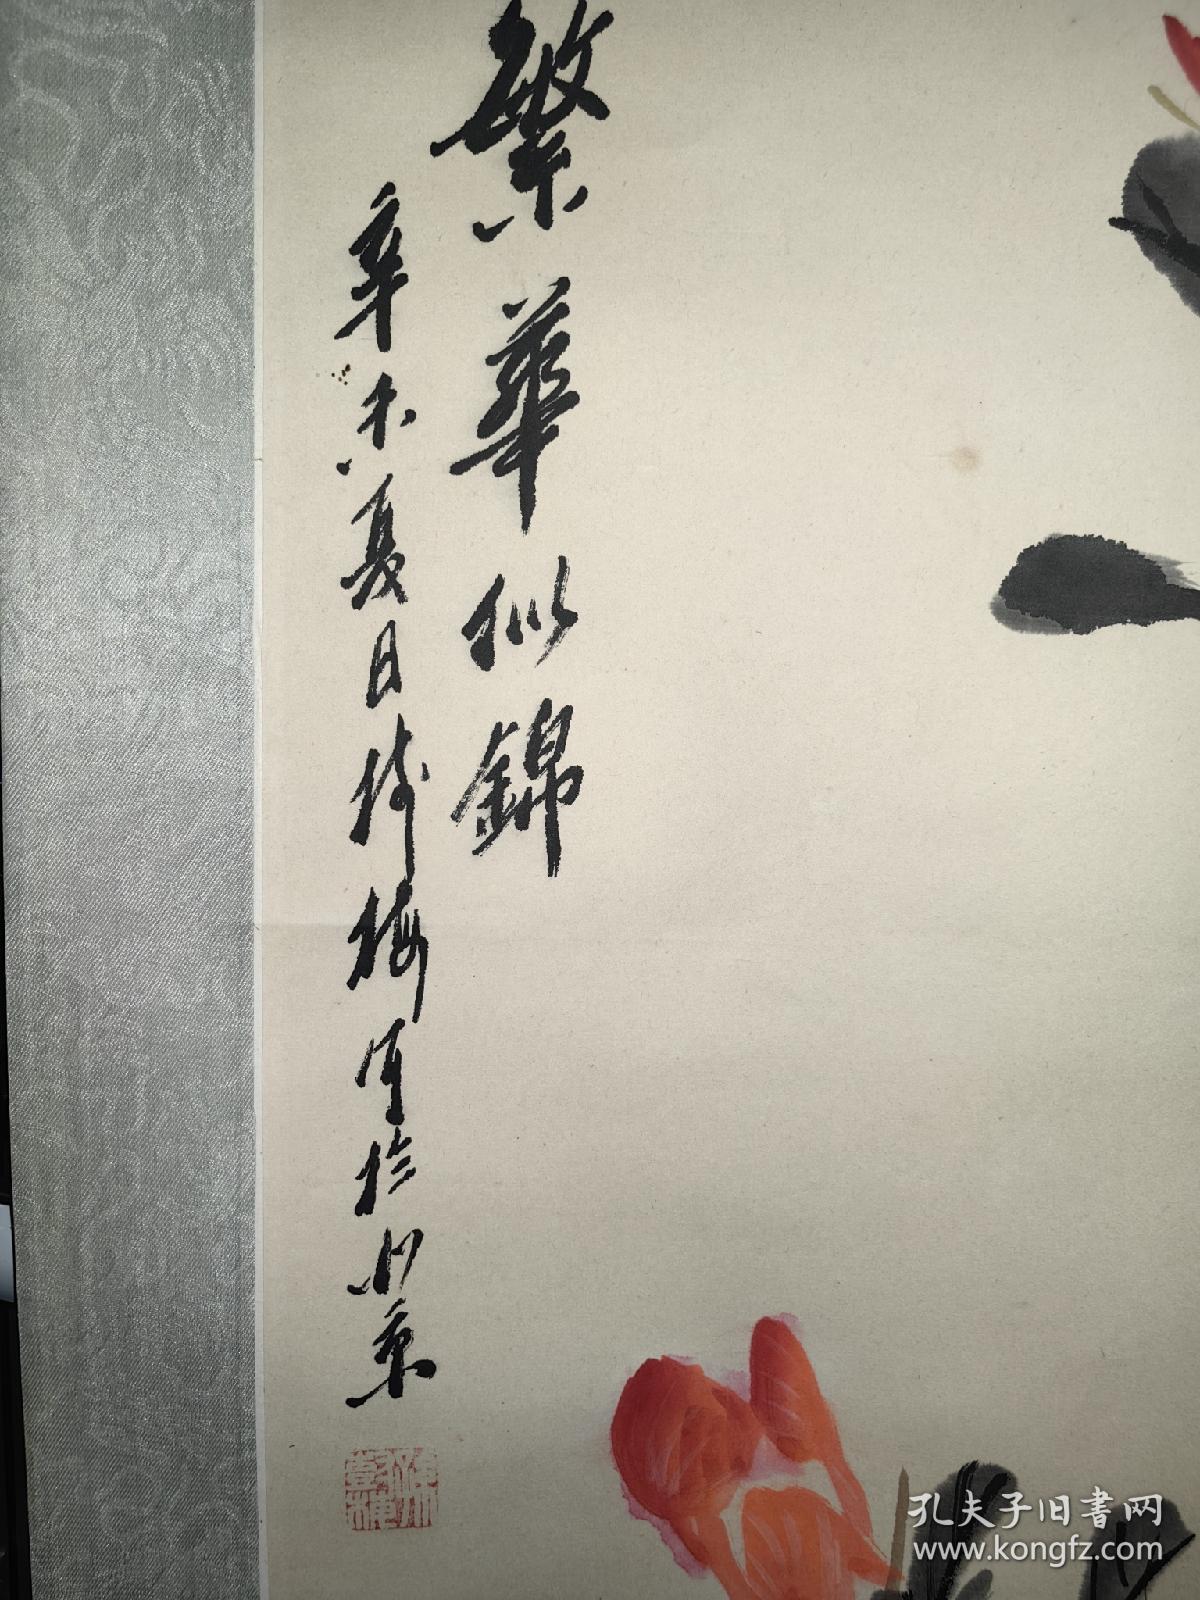 繁華似錦
辛未夏日绮梅写於北京
孔夫子旧書网
www.kongfz.com